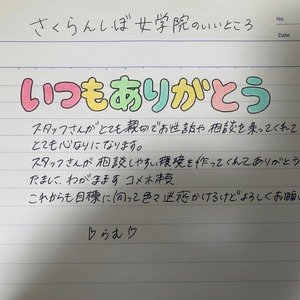 さくらんしぼ女学院のいいところ
No.
Date
いつもありがとう
スタッフさんがとても親切でお世話や相談を乗ってくれて
とても心なりになります。
スタッフさんが相談しやすい環境を作ってくれてありがとう
たまして、わがまます コメ
これからも目標に向って色々迷惑かけるけどよろしくお願い
♡らむ♡